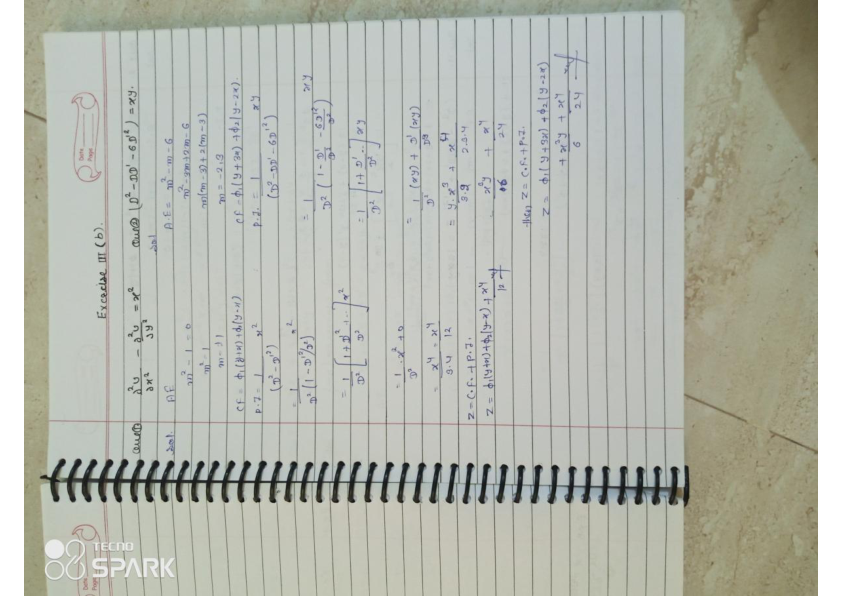 Date
Page
Excercise III (b).
Que① ∂²u/∂x² − ∂²u/∂y² = x²
Sol. A.E
m² − 1 = 0
m² = 1
m = ±1
CF = ϕ₁(y+x) + ϕ₂(y−x)
P.I = 1/(D² − D'²) x²
= 1/D²(1 − D'²/D²) x²
= 1/D² [1 + D'²/D² + ...] x²
= 1/D² x² + 0
= x⁴/3.4 = x⁴/12
Z = C.F. + P.I.
Z = ϕ₁(y+x) + ϕ₂(y−x) + x⁴/12
Que② (D² − DD' − 6D'²) = xy.
Sol.
A.E = m² − m − 6
m² − 3m + 2m − 6
m(m−3) + 2(m−3)
m = −2, 3
CF = ϕ₁(y+3x) + ϕ₂(y−2x).
P.I. = 1/(D² − DD' − 6D'²) xy
= 1/D²(1 − D'/D − 6D'²/D²) xy
= 1/D² [1 + D'/D ...] xy
= 1/D² (xy) + D'/D³ (xy)
= y.x³/3.2 + x⁴/2.3.4
= x³y/6 + x⁴/24
Z = C.F. + P.I.
Z = ϕ₁(y+3x) + ϕ₂(y−2x)
+ x³y/6 + x⁴/24
Date
Page
TECNO
SPARK